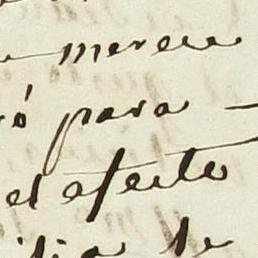 merece
ró para
el efecto